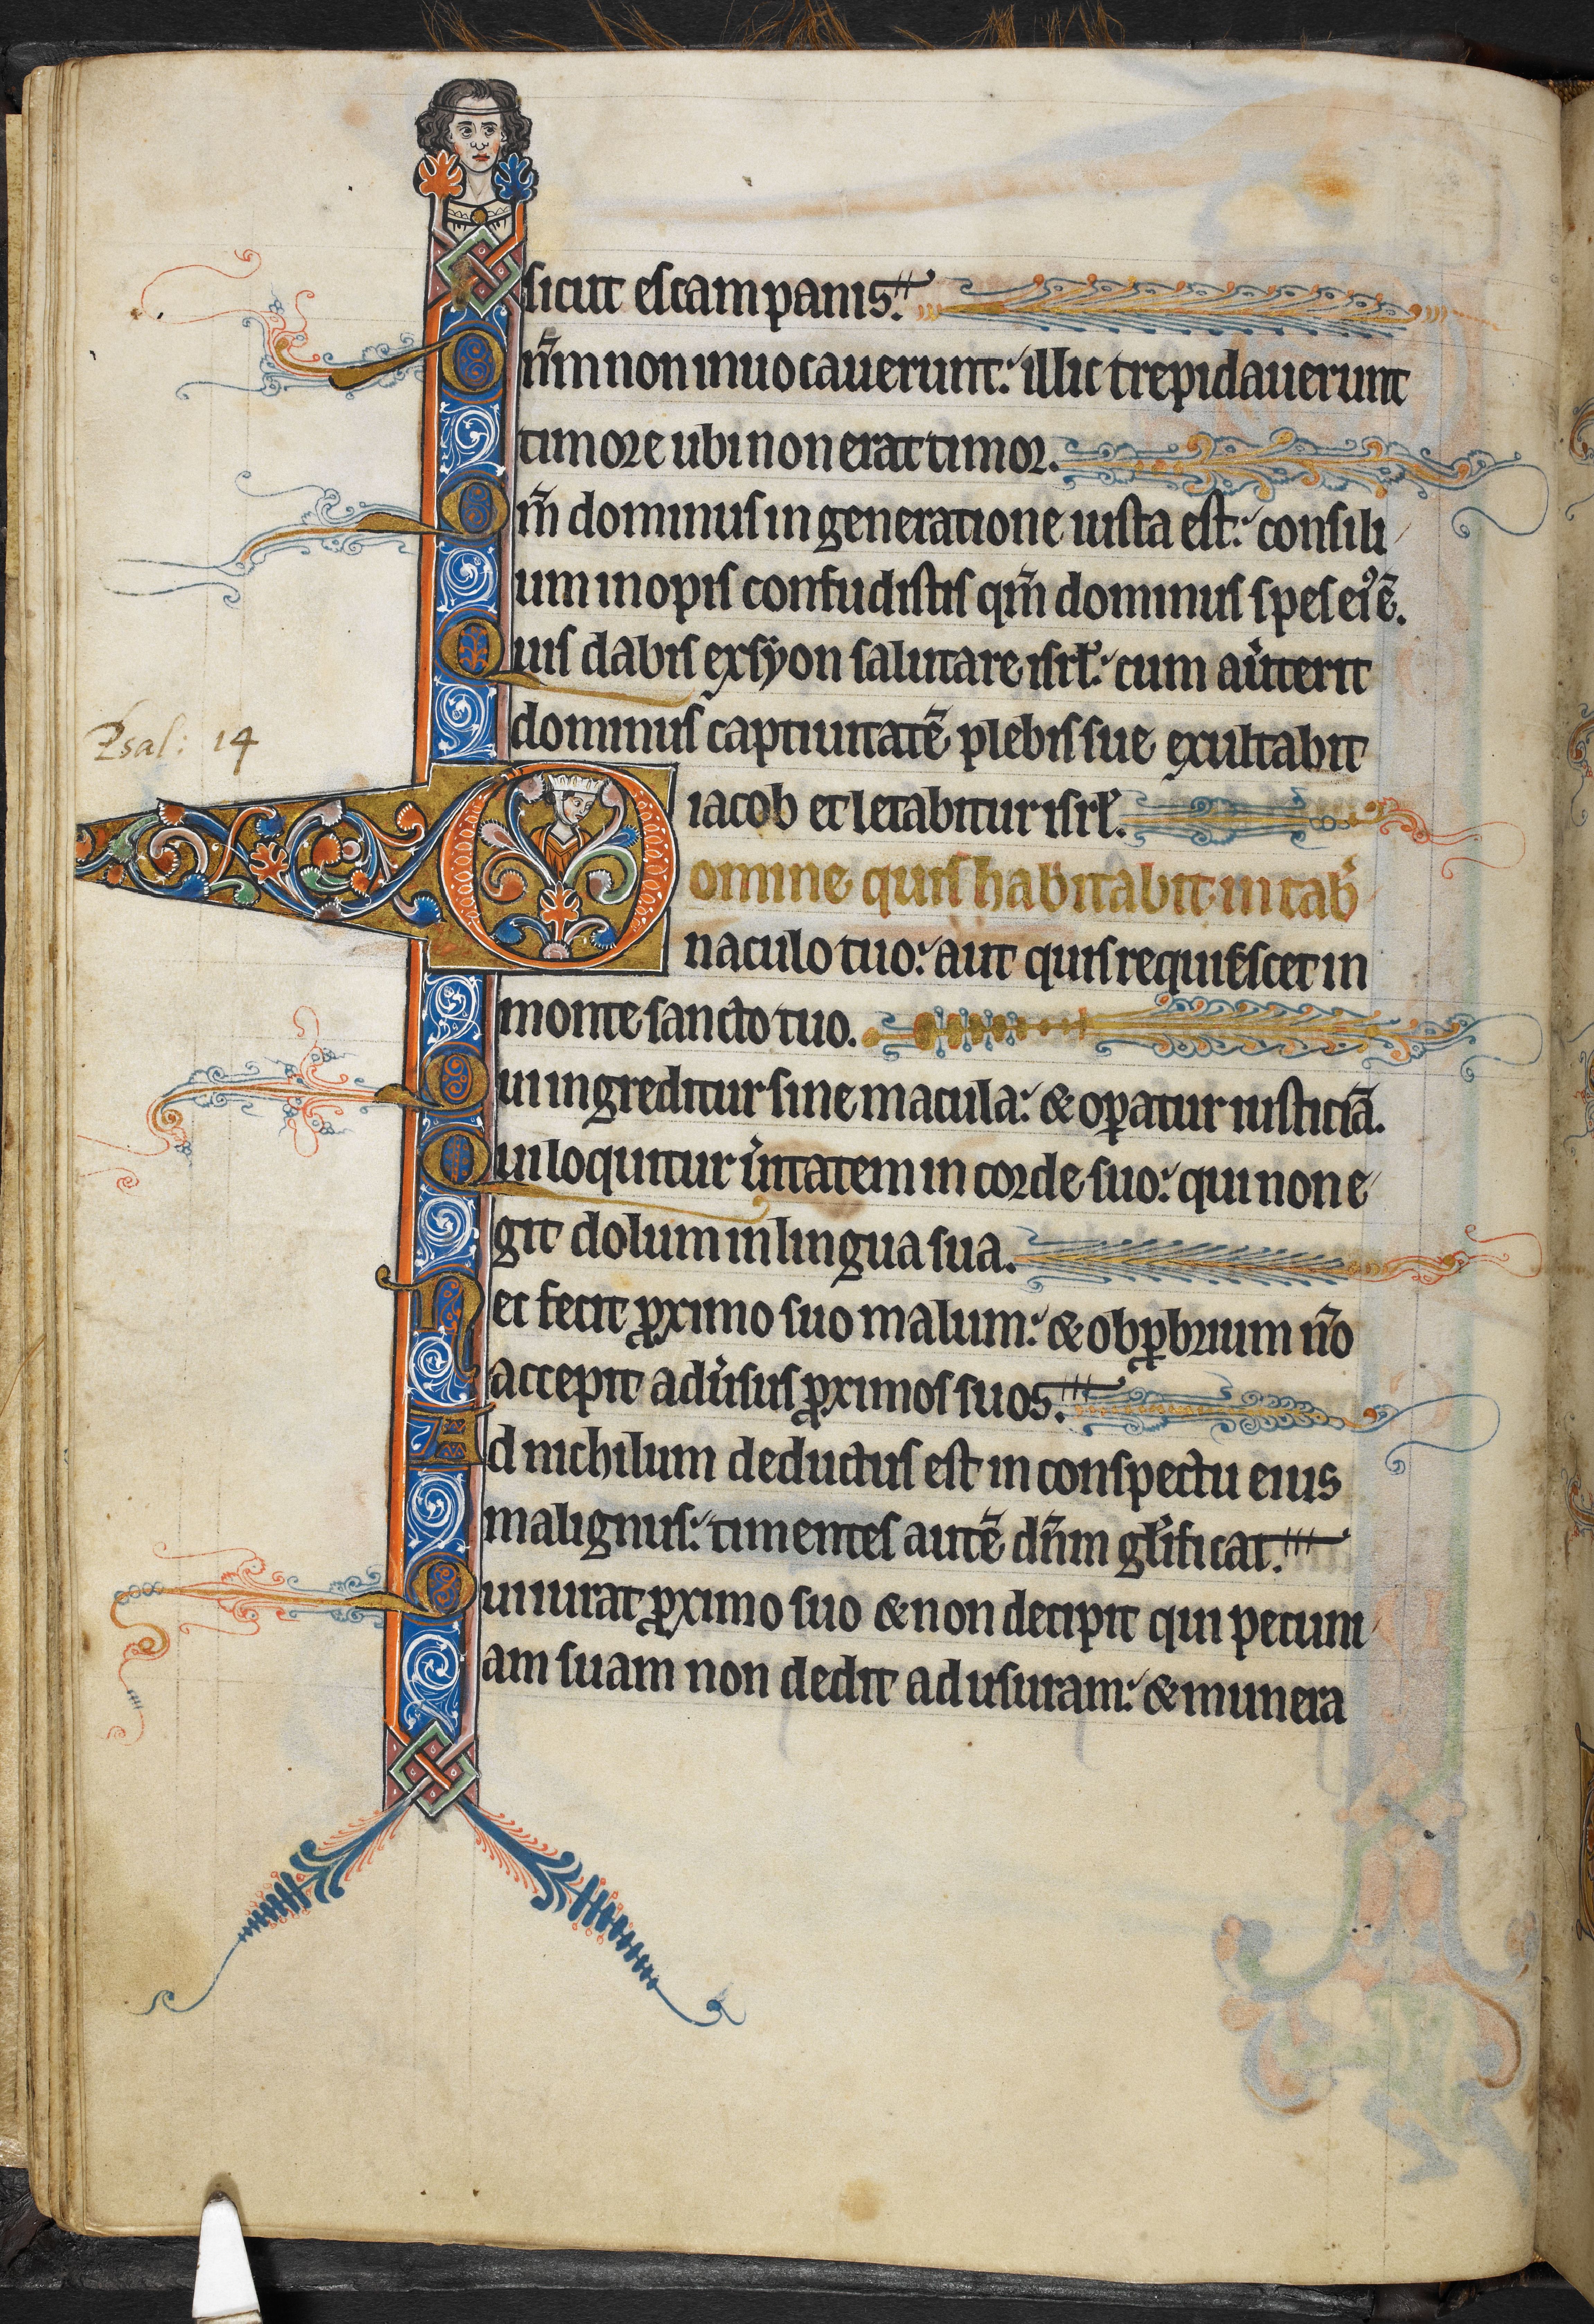 sicut escam panis.
Dn̄m non inuocauerunt: illic trepidauerunt
timore ubi non erat timor.
Qm̄ dominus in generatione iusta est: consili
um inopis confudistis qm̄ dominus spes eiꝰ ē.
Quis dabit ex syon salutare isrł: cum au͛terit
dominus captiuitatē plebis sue exultabit
iacob et letabitur isrł.
Psal: 14
Domine quis habitabit in tab͛
naculo tuo: aut quis requiescet in
monte sancto tuo.
Qui ingreditur sine macula: & oꝑatur iusticiā.
Qui loquitur u͛itatem in corde suo: qui non e
git dolum in lingua sua.
Nec fecit ꝓximo suo malum: & obꝓbrium nō
accepit adu͛sus ꝓximos suos.
Ad nichilum deductus est in conspectu eius
malignus: timentes autē dn̄m gl̄ificat.
Qui iurat ꝓximo suo & non decipit qui pecuni
am suam non dedit ad usuram: & munera